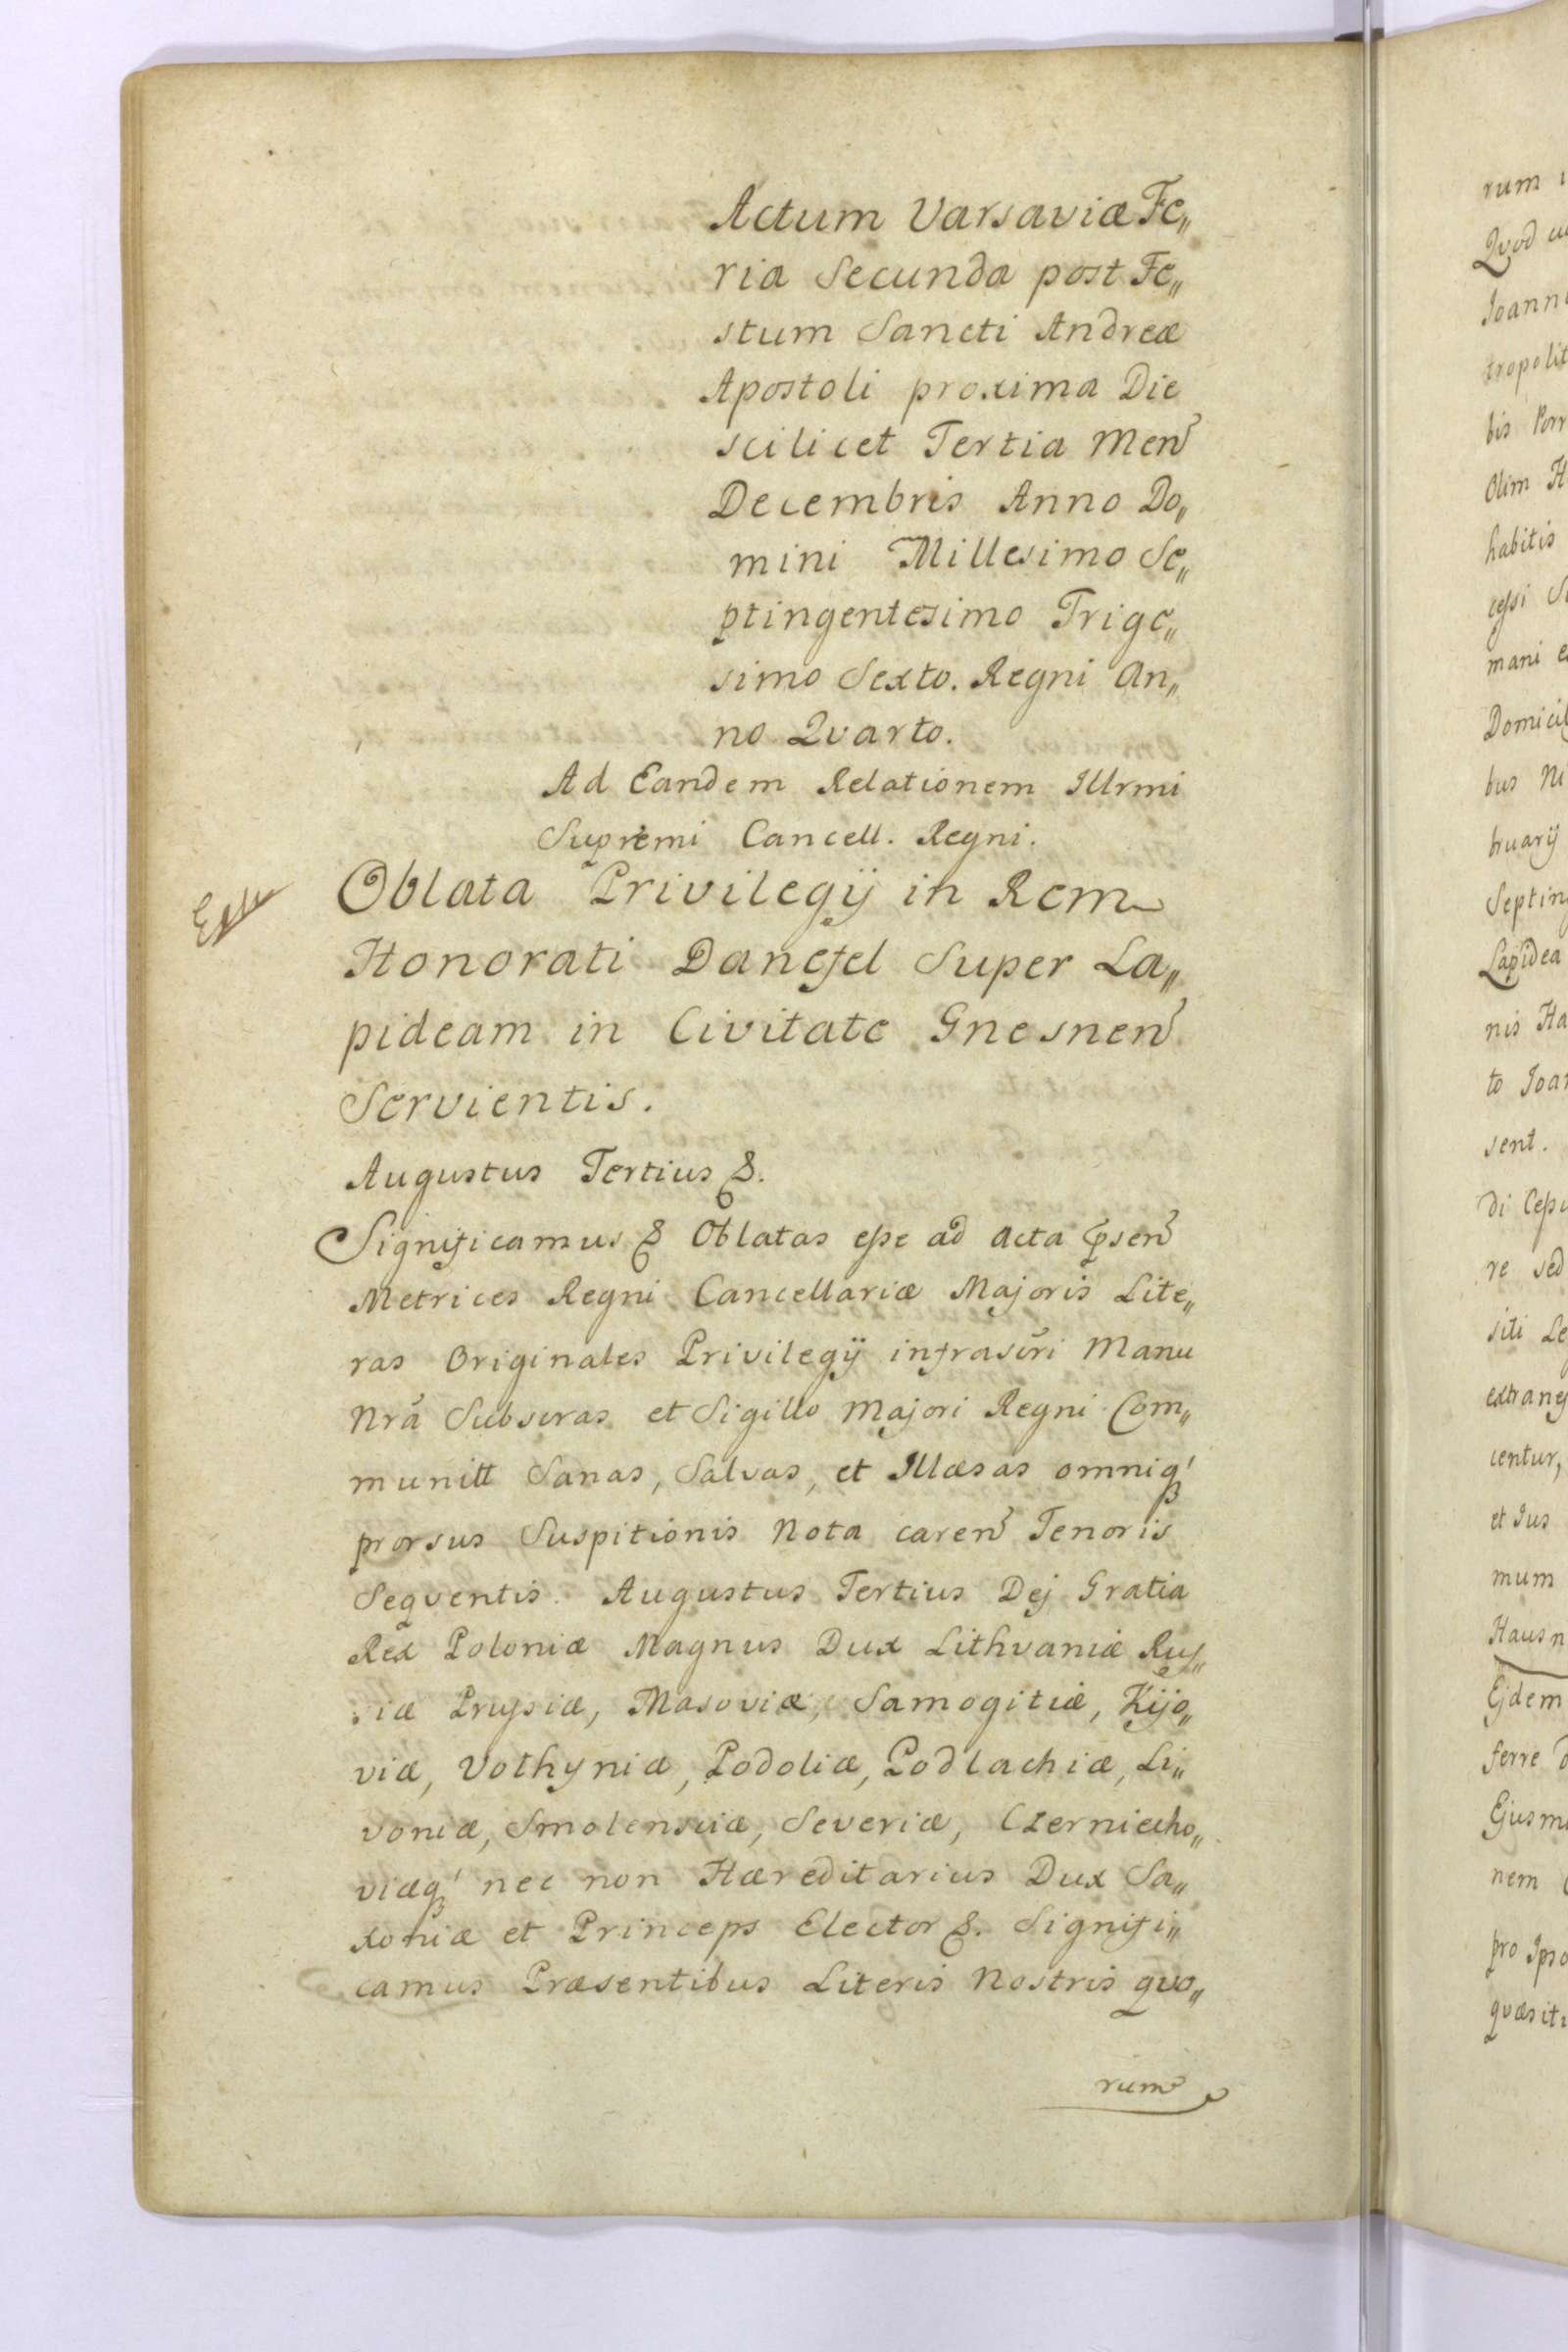 Actum Varsaviæ Fe„
ria Secunda post Fe„
stum Sancti Andreæ
Apostoli proxima Die
scilicet Tertia Men̄
Decembris Anno Do„
mini Millesimo Se„
ptingentesimo Trige„
simo Sexto. Regni An„
no Qvarto.
Ad Eandem Relationem Illrmi
Supremi Cancell. Regni.
Oblata Privilegij in Rem
Honorati Danefel Super La„
pideam in Civitate Gnesnen̄
Servientis.
Augustus Tertius &.
Significamus & Oblatas esse ad Acta p̄sen̄
Metrices Regni Cancellariæ Majoris Lite„
ras Originales Privilegij infrascr̄i Manu
Nrā Subscras et Sigillo Majori Regni Com„
munitt Sanas, Salvas, et Illæsas omniq'
prorsus Suspitionis Nota caren̄ Tenoris
Seqventis. Augustus Tertius Dej Gratia
Rex Poloniæ Magnus Dux Lithvaniæ Rus„
siæ Prussiæ, Masoviæ, Samogitiæ, Kijo„
viæ, Volhyniæ, Podoliæ, Podlachiæ, Li„
voniæ, Smolensciæ, Severiæ, Czerniecho„
viæq' nec non Hæreditarius Dux Sa„
xoniæ et Princeps Elector &. Signifi„
camus Præsentibus Literis Nostris qvo„
rum
rum
Qvod
Joann
tropolit
bis Porr
Olim
habitis
cessi
mani
Domicil
bus
bruarij
Septin
Lapidea
nis Ha
to Joan
sent.
di Cess
re sed
siti Le
extrane
centur,
et Jus
mum
Hausn
Ejdem
ferre
Ejusm
nem
pro Ipso
qvæsit